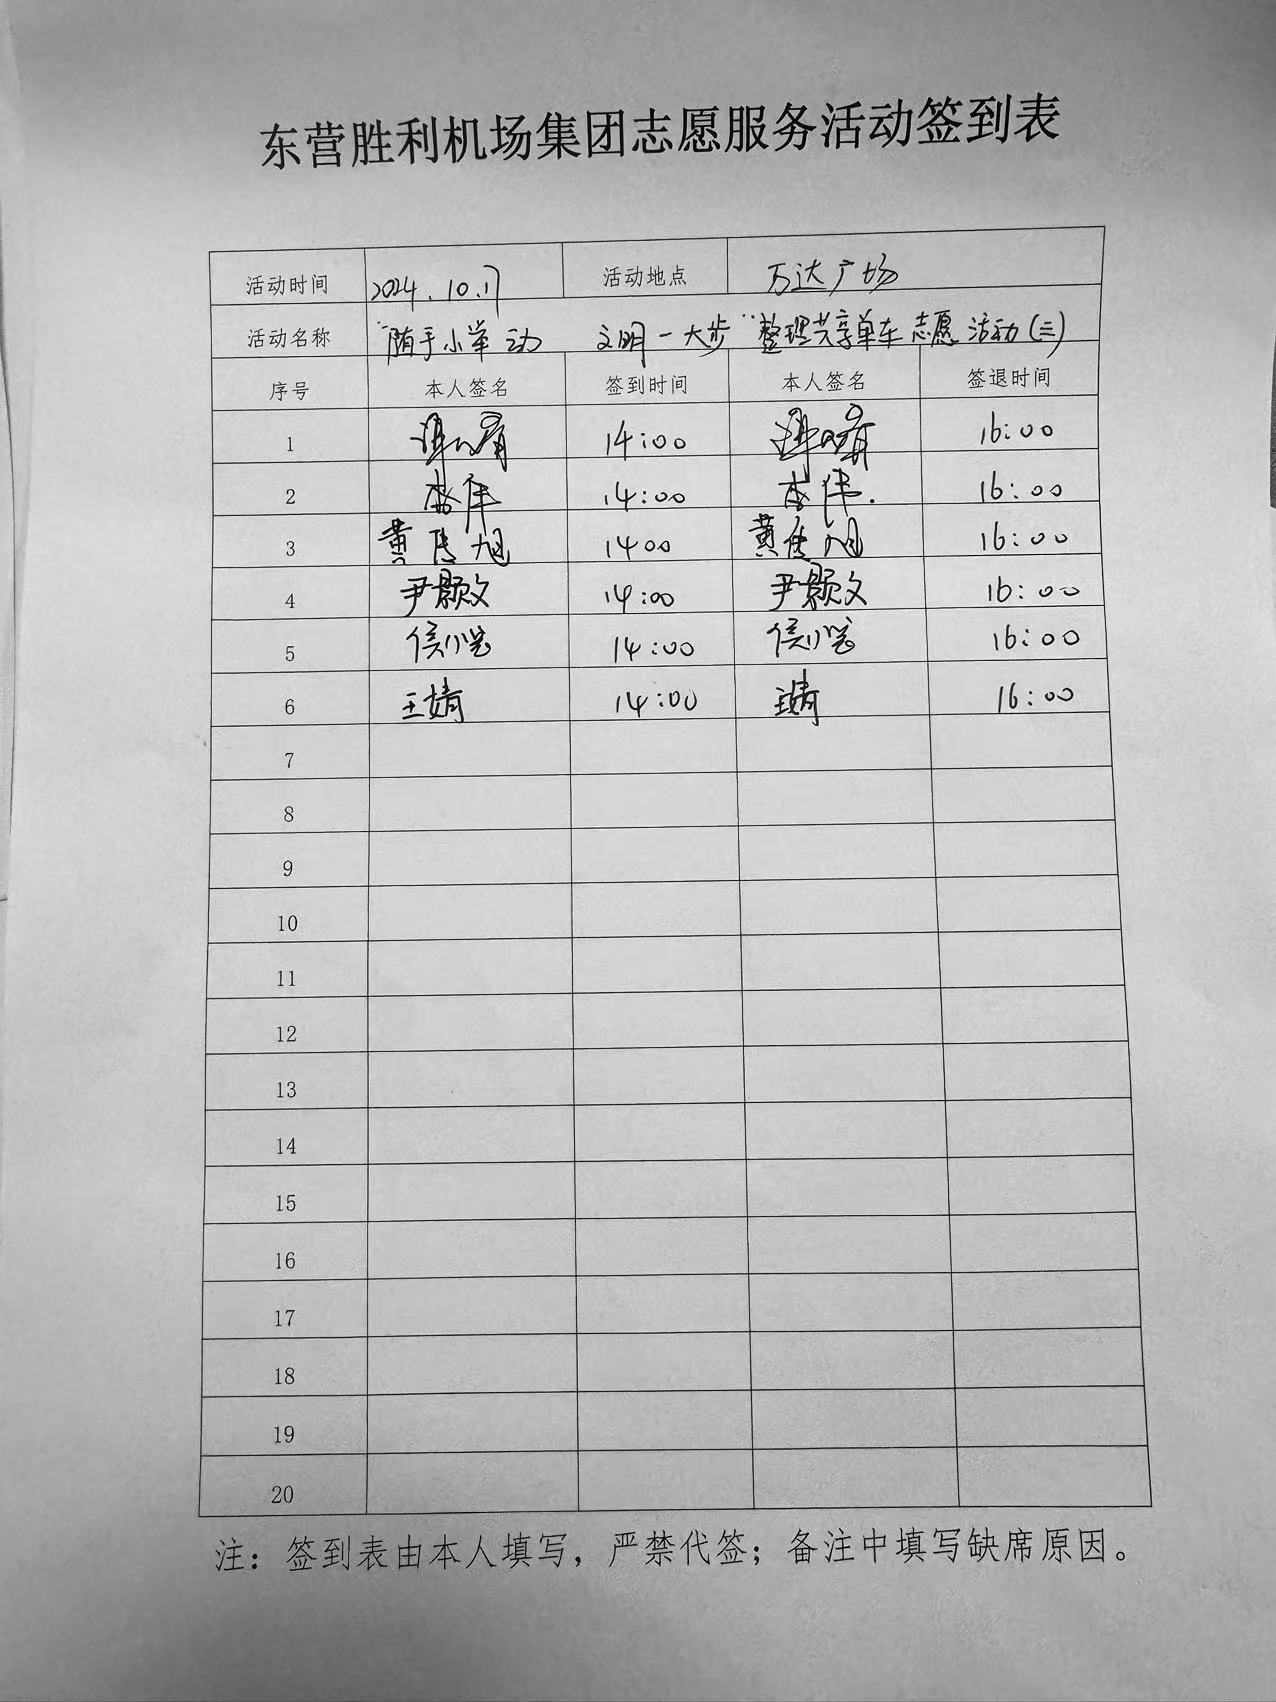 东营胜利机场集团志愿服务活动签到表
活动时间 2024.10.17 活动地点 万达广场
活动名称 "随手小举动 文明一大步"整理共享单车志愿活动(三)
序号 本人签名 签到时间 本人签名 签退时间
1 14:00 16:00
2 李伟 14:00 李伟. 16:00
3 黄传旭 1400 黄传旭 16:00
4 尹颢文 14:00 尹颢文 16:00
5 侯小宝 14:00 侯小宝 16:00
6 王婧 14:00 王婧 16:00
7
8
9
10
11
12
13
14
15
16
17
18
19
20
注：签到表由本人填写，严禁代签；备注中填写缺席原因。